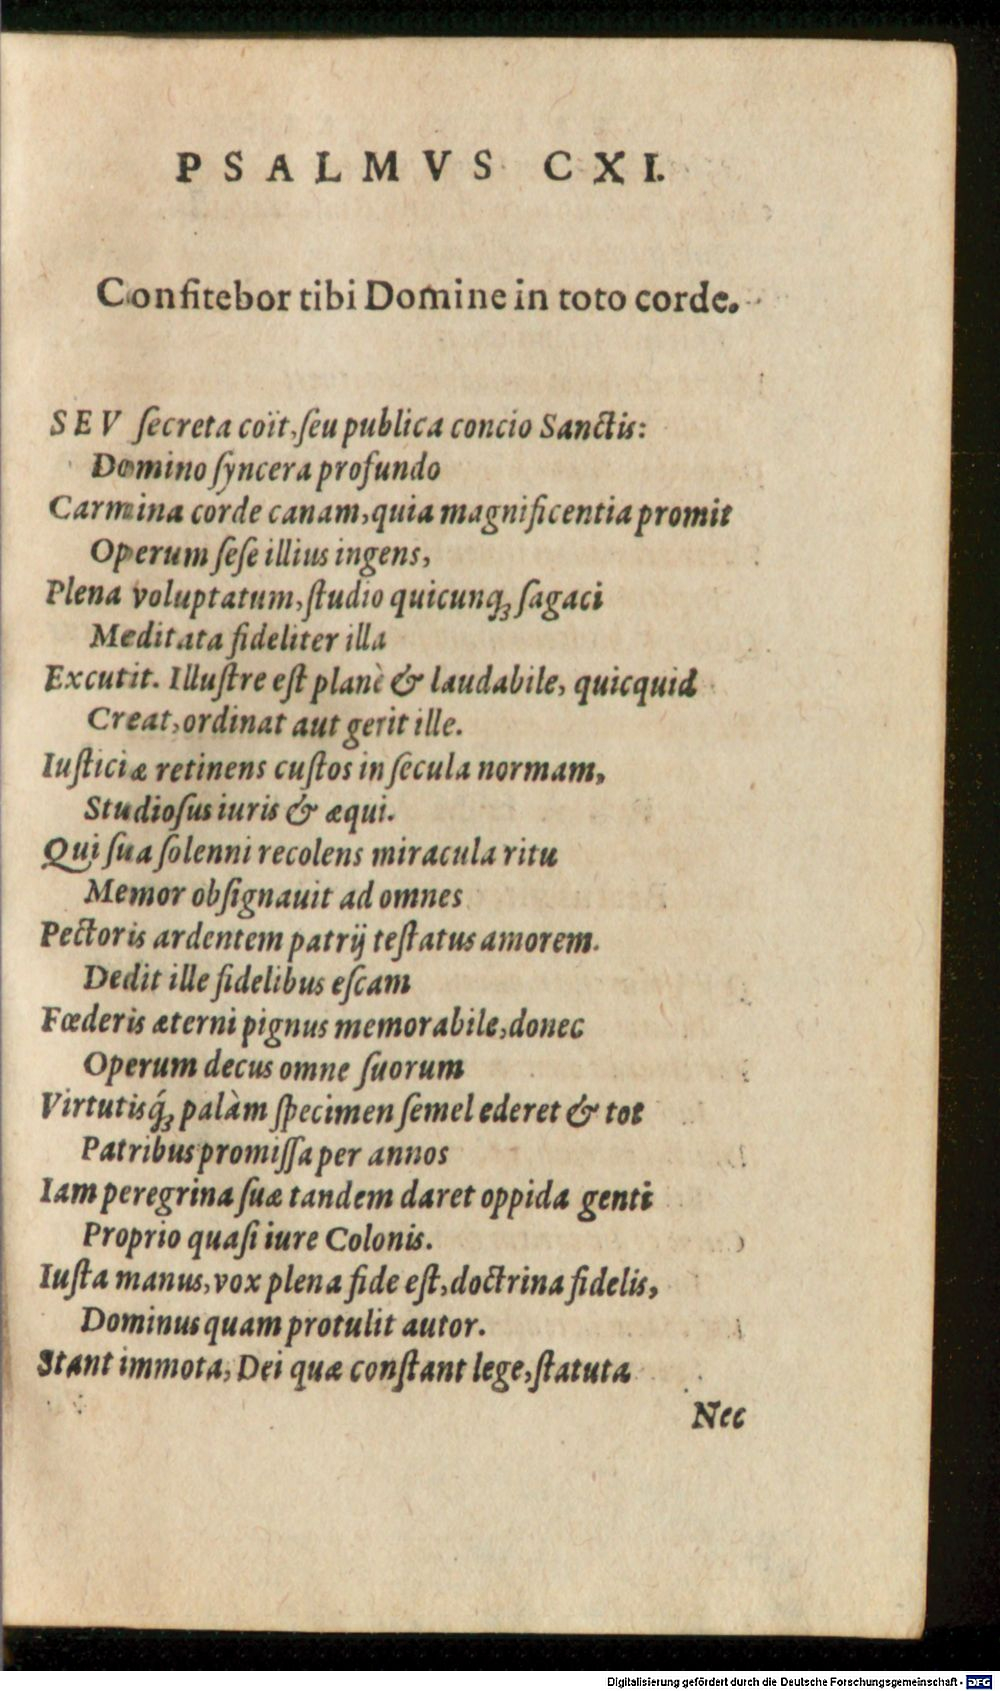 PSALMVS CXI.
Confitebor tibi Domine in toto corde.
SEV ſecreta coït, ſeu publica concio Sanctis:
Domino ſyncera profundo
Carmina corde canam, quia magnificentia promit
Operum ſeſe illius ingens,
Plena voluptatum, ſtudio quicunqꝫ ſagaci
Meditata fideliter illa
Excutit. Illuſtre eſt planè & laudabile, quicquid
Creat, ordinat aut gerit ille.
Iuſticiæ retinens cuſtos in ſecula normam,
Studioſus iuris & æqui.
Qui ſua ſolenni recolens miracula ritu
Memor obſignauit ad omnes
Pectoris ardentem patrij teſtatus amorem.
Dedit ille fidelibus eſcam
Fœderis æterni pignus memorabile, donec
Operum decus omne ſuorum
Virtutisq́ꝫ palàm ſpecimen ſemel ederet & tot
Patribus promiſſa per annos
Iam peregrina ſuæ tandem daret oppida genti
Proprio quaſi iure Colonis.
Iuſta manus, vox plena fide eſt, doctrina fidelis,
Dominus quam protulit autor.
Stant immota, Dei quæ conſtant lege, ſtatuta
Nec
Digitalisierung gefördert durch die Deutsche Forschungsgemeinschaft - DFG